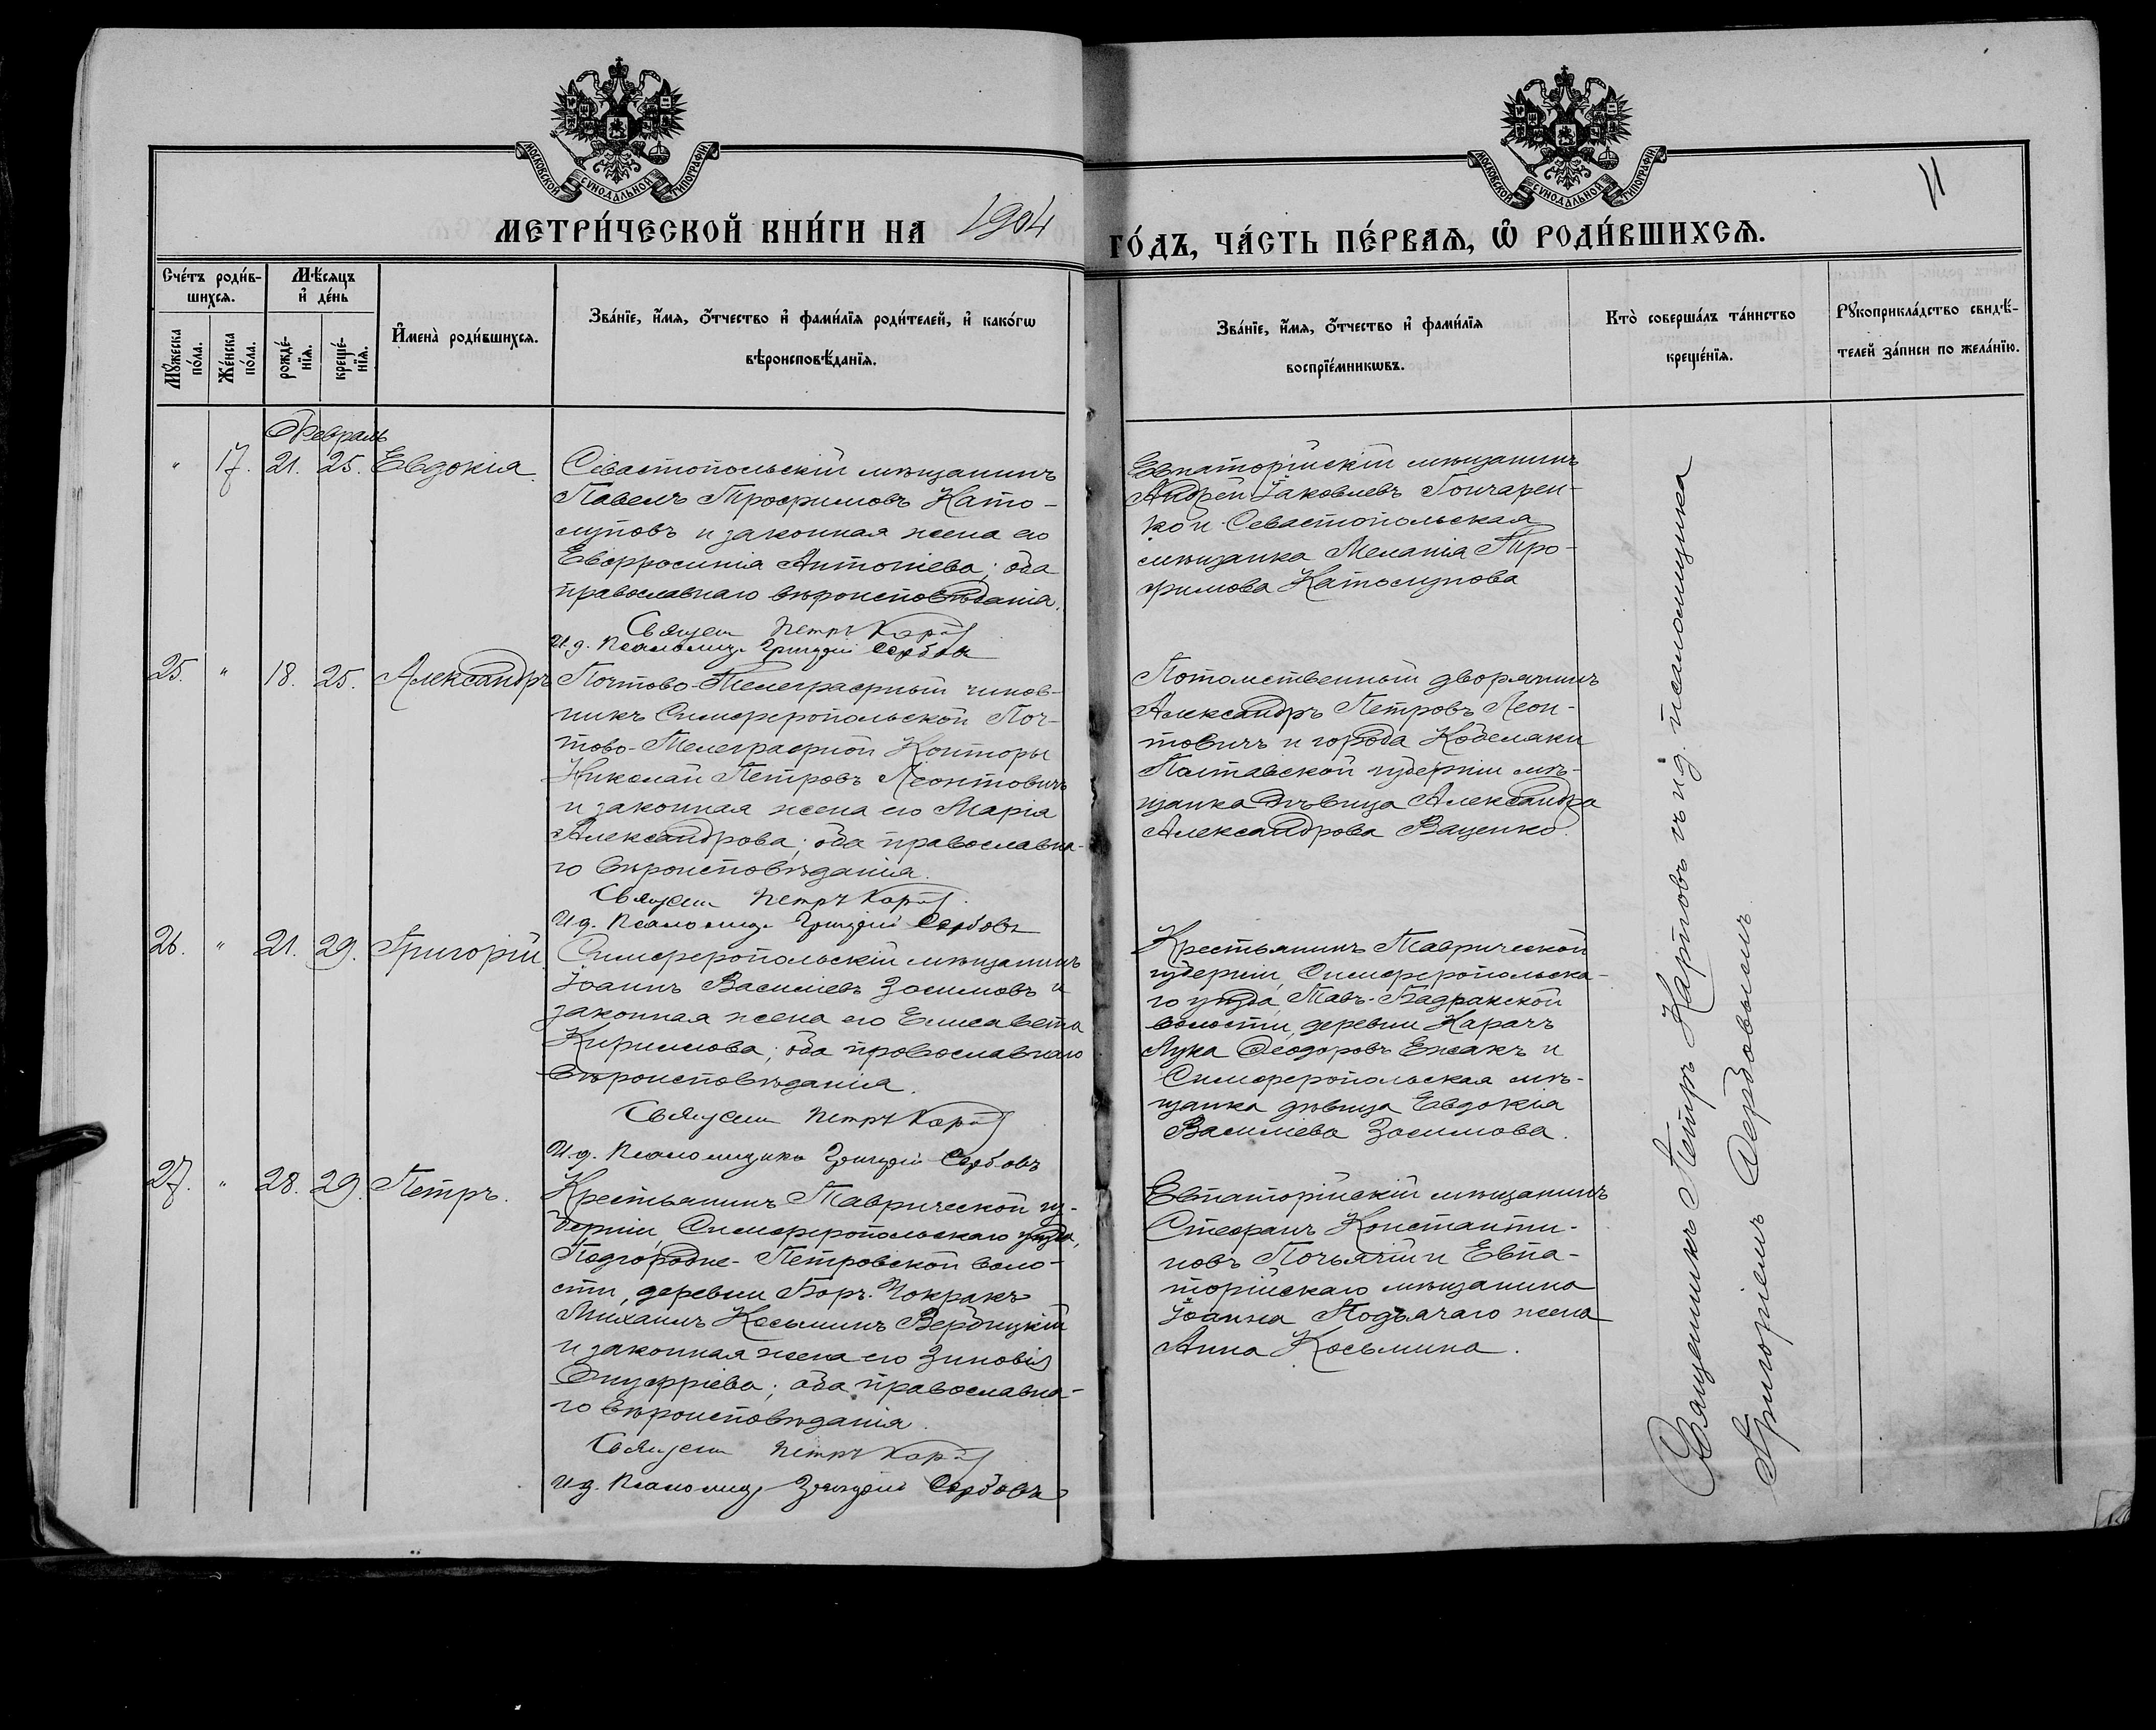 МОСКОВСКОЙ СѴНОДАЛЬНОЙ ТИПОГРАФІИ
МОСКОВСКОЙ СѴНОДАЛЬНОЙ ТИПОГРАФІИ
11
МЕТРИ́ЧЕСКОЙ КНИ́ГИ НА 1904
ГО́ДЪ, ЧА́СТЬ ПЕ́РВАѦ, Ѽ РОДИ́ВШИХСѦ.
Сче́тъ роди́в-
шихсѧ.
Мꙋжеска по́ла.
Же́нска по́ла.
Мѣ́сѧцъ
и҆ де́нь
рожде́-
нїѧ.
креще́-
нїѧ.
И҆мена̀ роди́вшихсѧ.
Зва́нїе, и҆́мѧ, ѻ҆́тчество и҆ фами́лїѧ роди́телей, и҆ како́гѡ
вѣроисповѣ́данїѧ.
Зва́нїе, и҆́мѧ, ѻ҆́тчество и҆ фами́лїѧ
воспрїе́мникѡвъ.
Кто̀ соверша́лъ та́инство
креще́нїѧ.
Рꙋкоприкла́дство свидѣ́-
телей за́писи по жела́нїю.
Февраль
" 17. 21. 25. Евдокія.
Севастопольскій мѣщанинъ
Павелъ Трофимовъ Като-
луповъ и законная жена его
Евфросинія Антоніева; оба
православнаго вѣроисповѣданія.
Священ Петръ Карповъ
И. д. Псаломщ. Григорій Сербовъ
Евпаторійскій мѣщанинъ
Андрей Іаковлевъ Гончарен-
ко и Севастопольская
мѣщанка Меланія Тро-
фимова Католупова
25. " 18. 25. Александръ
Почтово-Телеграфный чинов-
никъ Симферопольской Поч-
тово-Телеграфной Конторы
Николай Петровъ Леонтовичъ
и законная жена его Марія
Александрова; оба православна-
го вѣроисповѣданія.
Священ Петръ Карповъ
И. д. Псаломщ. Григорій Сербовъ
Потомственный дворянинъ
Александръ Петровъ Леон-
товичъ и города Кобеляки
Полтавской губерніи мѣ-
щанка дѣвица Александра
Александрова Ваценко.
26. " 21. 29. Григорій.
Симферопольскій мѣщанинъ
Іоаннъ Василіевъ Зосимовъ и
законная жена его Елисавета
Кириллова; оба православнаго
вѣроисповѣданія.
Священ Петръ Карповъ
И. д. Псаломщика Григорій Сербовъ
Крестьянинъ Таврической
губерніи, Симферопольска-
го уѣзда, Тавъ-Бадракской
волости, деревни Карачъ
Лука Ѳеодоровъ Ежакъ и
Симферопольская мѣ-
щанка дѣвица Евдокія
Василіева Зосимова.
27. " 28. 29. Петръ.
Крестьянинъ Таврической гу-
берніи, Симферопольскаго уѣзда,
Подгородне-Петровской воло-
сти, деревни Боръ-Чокракъ
Михаилъ Косьминъ Вербицкій
и законная жена его Зиновія
Онуфріева; оба православна-
го вѣроисповѣданія.
Священ Петръ Карповъ
И. д. Псаломщ. Григорій Сербовъ
Евпаторійскій мѣщанинъ
Стефанъ Константи-
новъ и Евпа-
торійскаго мѣщанина
Іоанна Подъячаго жена
Анна Косьмина.
Священникъ Петръ Карповъ съ и. д. псаломщика
Григоріемъ Сербовымъ.